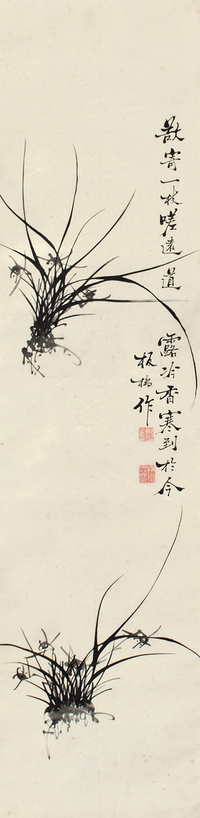 欲寄一枝嗟遠道
露冷香寒到於今
板橋作